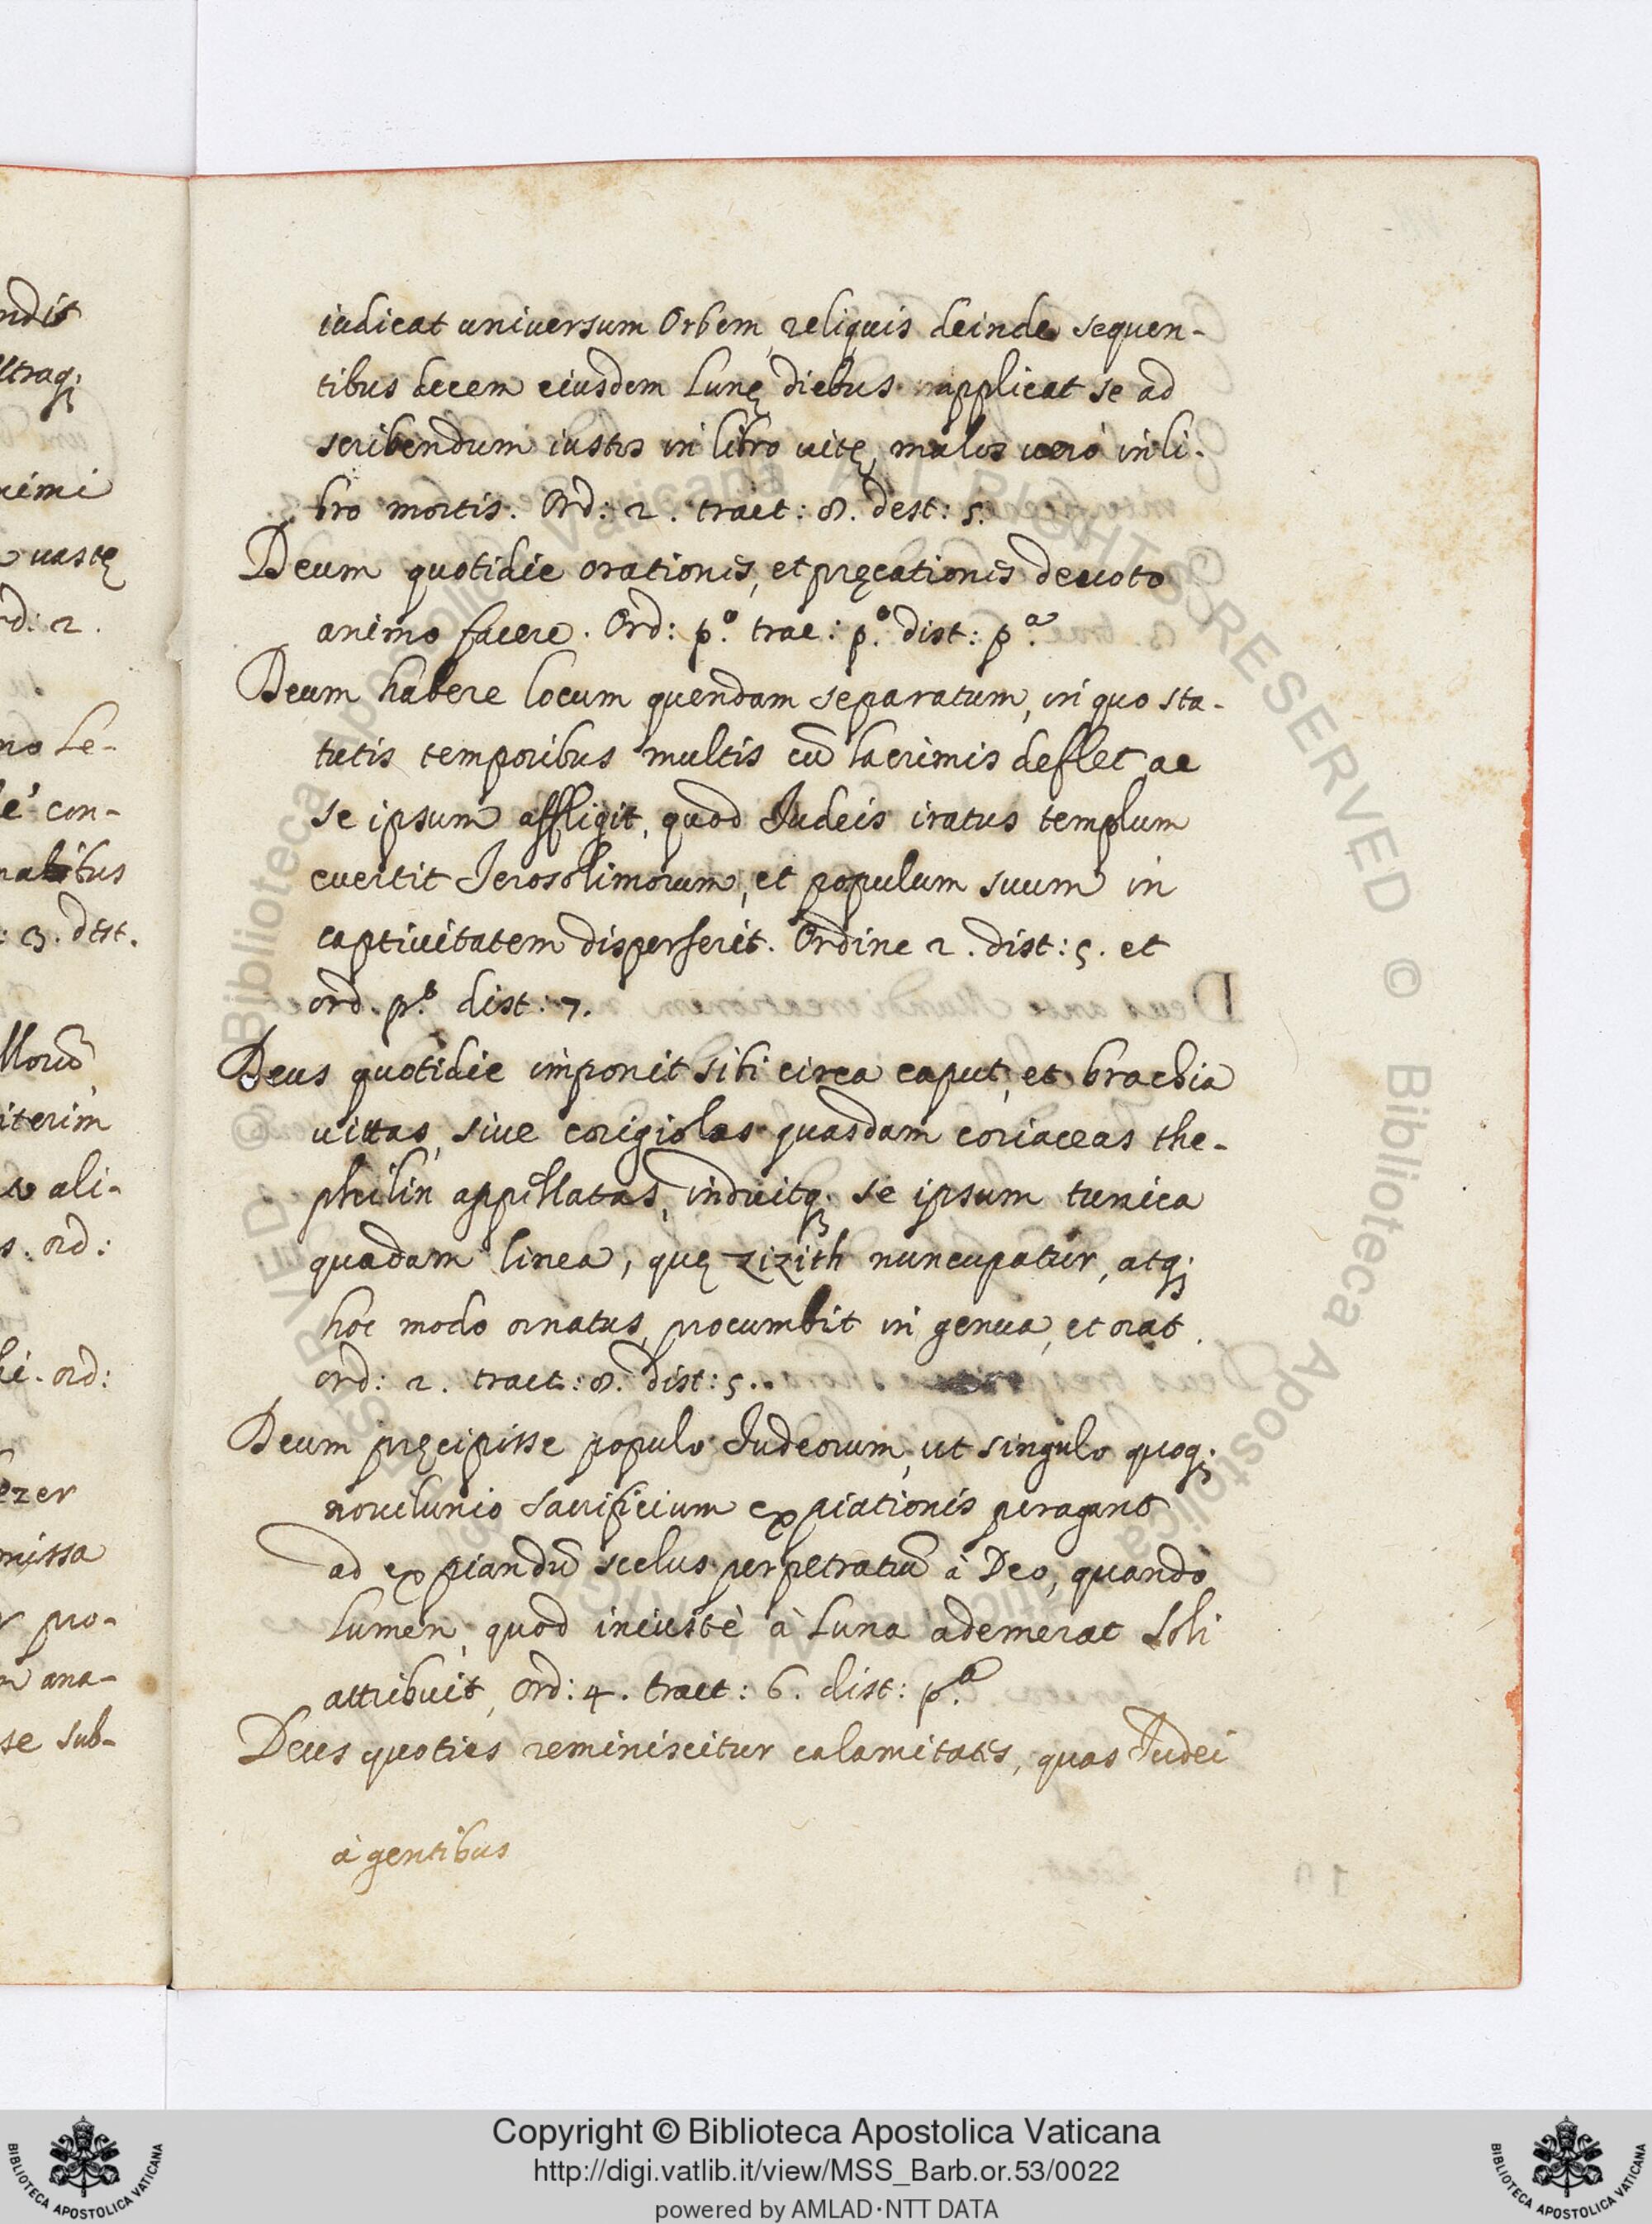 iudicat uniuersum Orbem, reliquis deinde sequen-
tibus decem eiusdem Lunę diebus applicat se ad
scribendum iustos in libro uitę, malos uerò in li-
bro mortis. Ord: 2. tract: 8. dest: 5.
Deum quotidie orationes, et pręcationes deuoto
animo facere. Ord: p.º trac: p.º dist: p.ª
Deum habere locum quendam separatum, in quo sta-
tutis temporibus multis cū lacrimis deflet ac
se ipsum affligit, quod Judeis iratus templum
euertit Jerosolimorum, et populum suum in
captiuitatem disperserit. Ordine 2. dist: 5. et
ord. p.º dist: 7.
Deus quotidie imponit sibi circa caput, et brachia
uittas, siue corigiolas quasdam coriaceas the-
philin appellatas, induitq; se ipsum tunica
quadam linea, quę zizith nuncupatur, atq;
hoc modo ornatus, procumbit in genua, et orat.
ord: 2. tract: 8. dist: 5.
Deum pręcipisse populo Judeorum, ut singulo quoq;
nouilunio sacrificium expiationis peragant
ad expiandū scelus perpetratū à Deo, quandò
lumen, quod iniustè à Luna ademerat Soli
attribuit, Ord: 4. tract: 6. dist: p.ª
Deus quoties reminiscitur calamitates, quas Judei
à gentibus
ndit
ltraq;
uastę
rd: 2.
no Le-
con-
: 3. dist.
iterim
ali-
s. ord:
ord:
ezer
missa
pro-
ana-
se sub-
© Biblioteca Apostolica Vaticana ALL RIGHTS RESERVED
Copyright © Biblioteca Apostolica Vaticana
http://digi.vatlib.it/view/MSS_Barb.or.53/0022
powered by AMLAD·NTT DATA
BIBLIOTECA APOSTOLICA VATICANA
BIBLIOTECA APOSTOLICA VATICANA